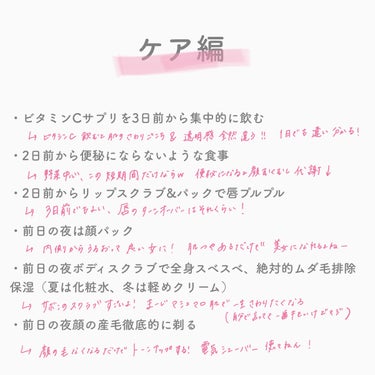 ケア編
・ビタミンCサプリを3日前から集中的に飲む
↳ ビタミンC 飲むと肌のさわりごこち & 透明感 全然違う!! 1日でも違い分かる!
・2日前から便秘にならないような食事
↳ 野菜中心、この短期間だけならw 便秘になると顔もむくむし 代謝↓
・2日前からリップスクラブ&パックで唇プルプル
↳ 3日前でもよい、唇のターンオーバーはそれくらい!
・前日の夜は顔パック
↳ 内側からうるおって 良い女に! 肌つやあるだけで 美女になれるよねー
・前日の夜ボディスクラブで全身スベスベ、絶対的ムダ毛排除
保湿(夏は化粧水、冬は軽めクリーム)
↳ サボンのスクラブすごいよ! まじマシュマロ肌で 一生さわりたくなる
・前日の夜顔の産毛徹底的に剃る
↳ 顔の毛なくなるだけで トーンアップする! 電気シェーバー 使ってね!